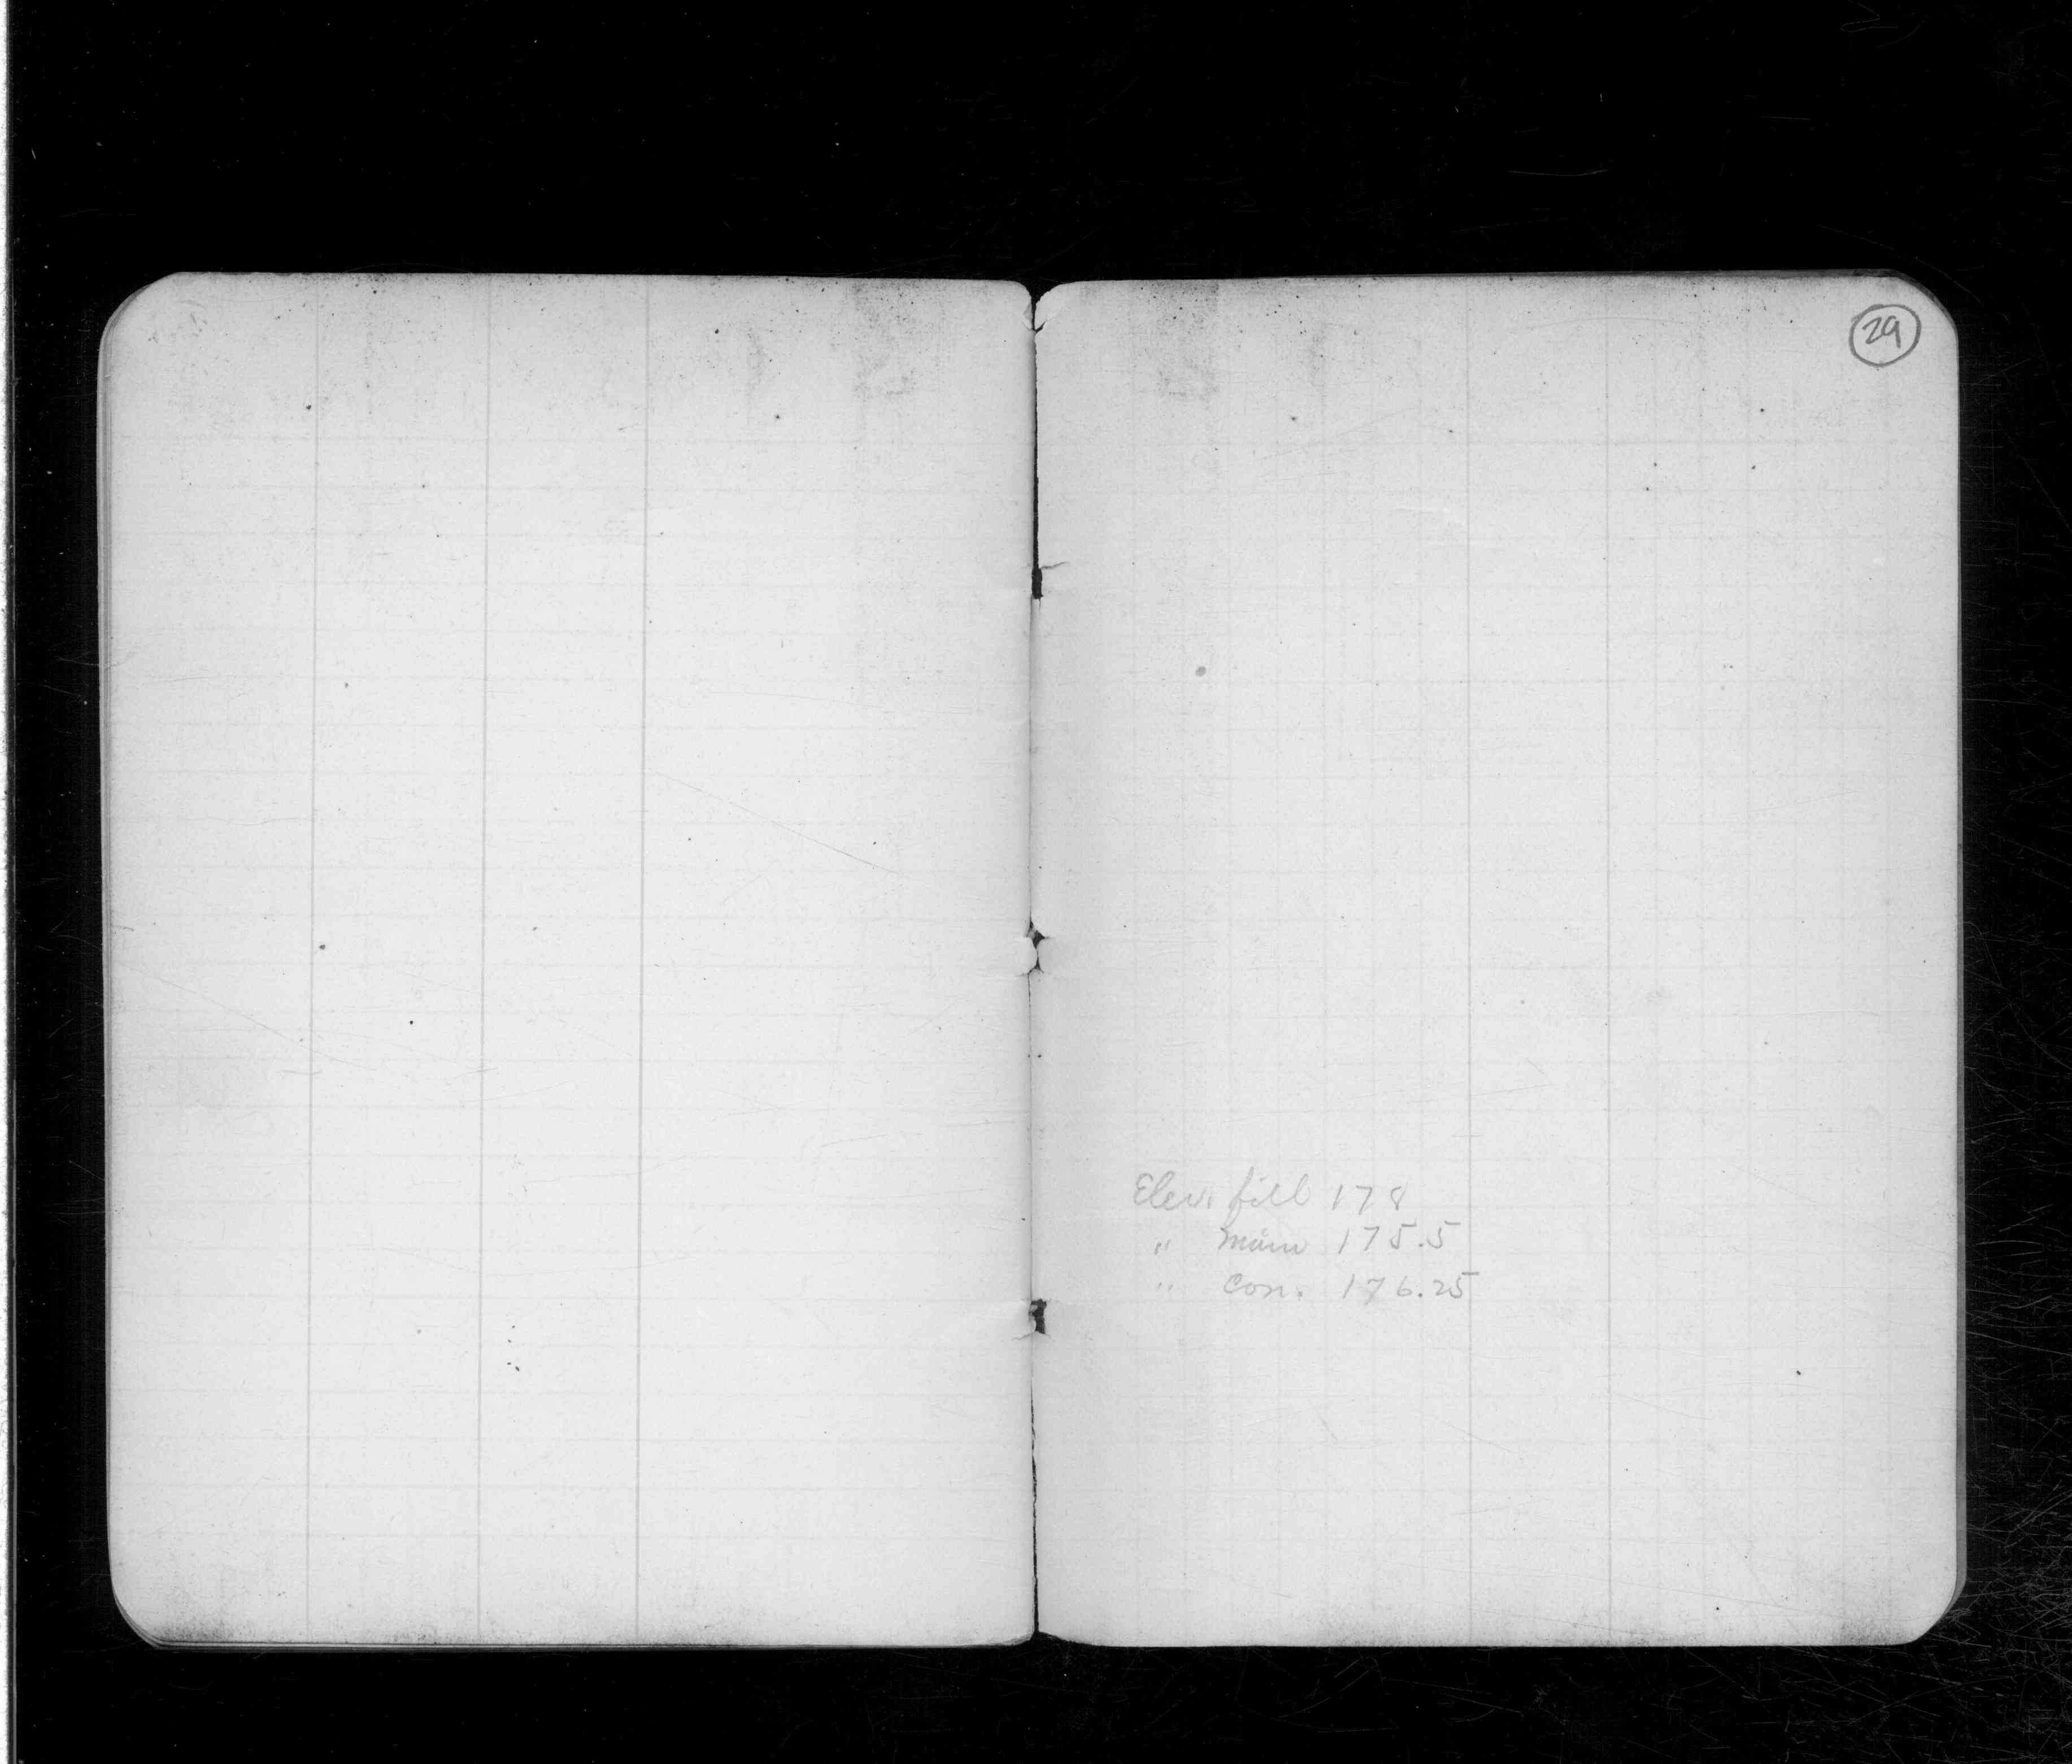 29
Elev. fill 178
" 175.5
" Con. 176.25